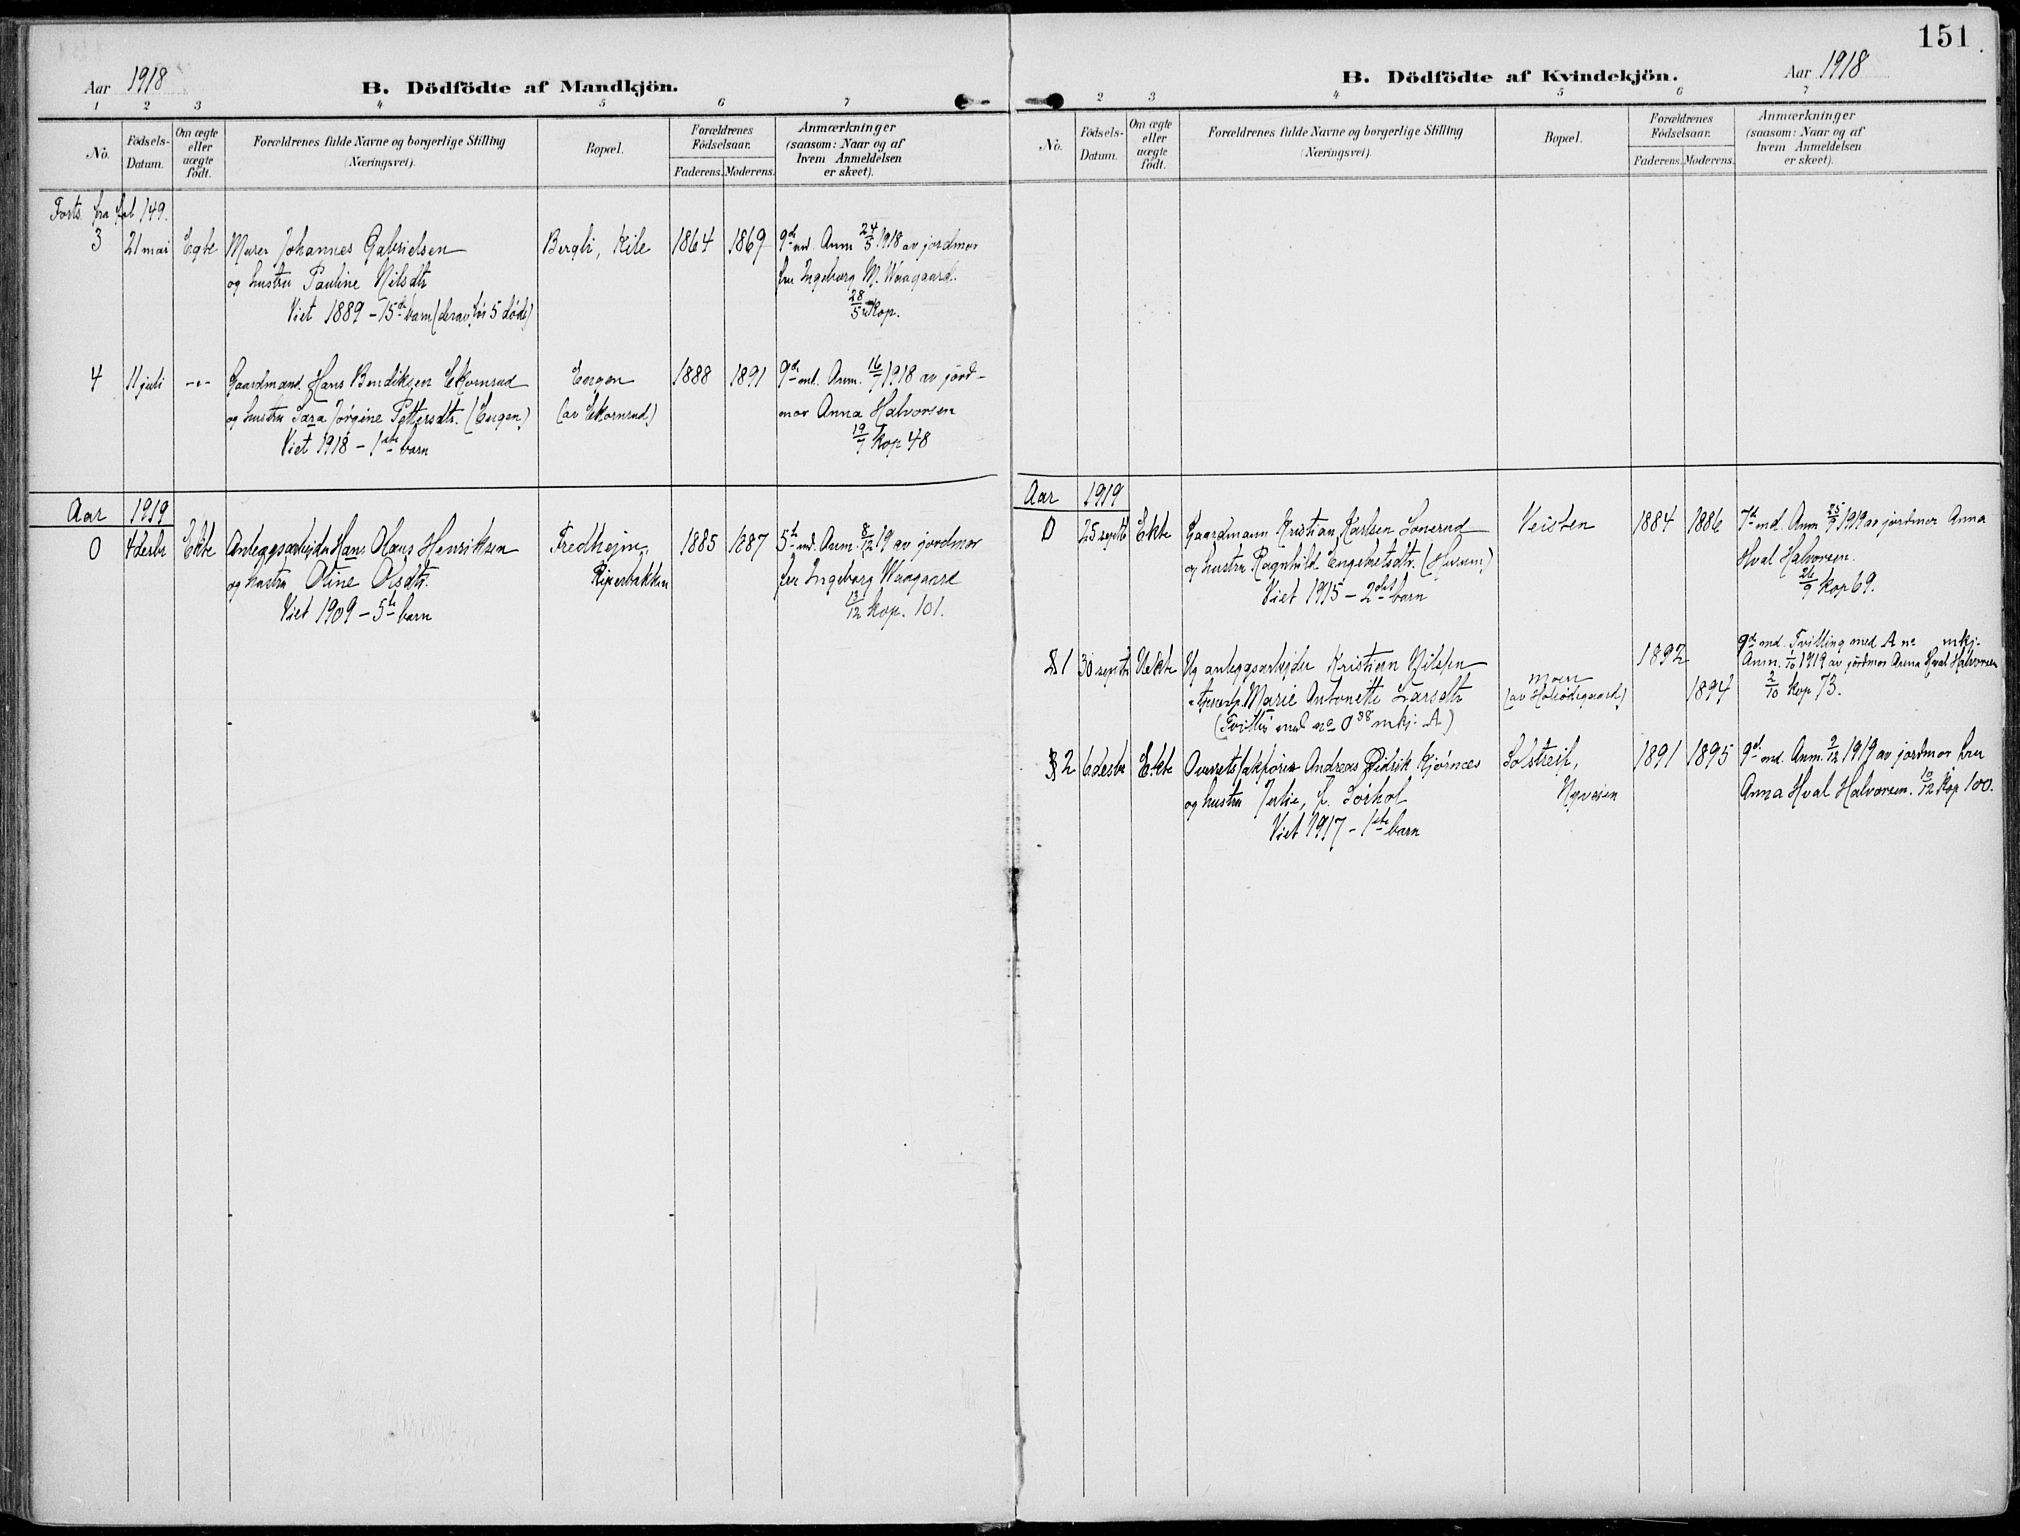 Aar 1918
B. Dödfödte af Mandkjön.
1 2 3 4 5 6 7
No.
Födsels-
Datum.
Om ægte
eller
uægte
født.
Forældrenes fulde Navne og borgerlige Stilling
(Næringsvei).
Bopæl.
Forældrenes
Födselsaar.
Faderens. Moderens.
Anmærkninger
(saasom: Naar og af
hvem Anmeldelsen
er skeet).
Forts. fra fol 149.
3 21 mai Egte Murer Johannes Gabrielsen Bergli, Kile 1864 1869 9d md. Anm 24/5 1918 av jordmor
og hustru Pauline Nilsdtr fru Ingeborg M. Waagaard.
Viet 1889 - 15de barn (derav før 5 døde) 28/5 kop.
4 11 juli -"- Gaardmand Hans Bendiksen Ekornrud Engen 1888 1891 9d md. Anm. 16/7 1918 av jord-
og hustru Sara Jørgine Pettersdtr. (Engen) (av Ekornrud) mor Anna Halvorsen
Viet 1918 - 1ste barn 19/7 kop 48
Aar 1919
0 4 desbr Ekte Anleggsarbejder Hans Olaus Henriksen Fredhejm, 1885 1887 5te md. Anm. 8/12 19 av jordmor
og hustru Oline Olsdtr. Riperbakken fru Ingeborg Waagaard
Viet 1909 - 5te barn 13/12 kop. 101.
151
B. Dödfödte af Kvindekjön.
Aar 1918
2 3 4 5 6 7
No.
Födsels-
Datum.
Om ægte
eller
uægte
født.
Forældrenes fulde Navne og borgerlige Stilling
(Næringsvei).
Bopæl.
Forældrenes
Födselsaar.
Faderens. Moderens.
Anmærkninger
(saasom: Naar og af
hvem Anmeldelsen
er skeet).
Aar 1919
0 25 septb Ekte Gaardmann Kristian Karlsen Sonerud Veisten 1884 1886 7de md. Anm 25/9 1919 av jordmor Anna
og hustru Ragnhild Engebretsdtr. (Husum) Hval Halvorsen.
Viet 1915 - 2det barn 26/9 kop 69.
1 30 septb Uekte Ug anleggsarbejder Kristian Nilsen 1892 9de md. Tvilling med A no mkj.
Marie Antonette Larsdtr Moen 1894 Anm. 1/10 1919 av jordmor Anna Hval Halvorsen
(Tvilling med no 0 38 mkj. A) 2/10 kop 73.
2 6 desbr Ekte Andreas Didrik Kjørnæs Solstreif, 1891 1895 9de md. Anm. 9/12 1919 av jordmor fru
og hustru f. Sørhol Nyveien Anna Hval Halvorsen. 10/12 kop 100.
Viet 1917 - 1ste barn